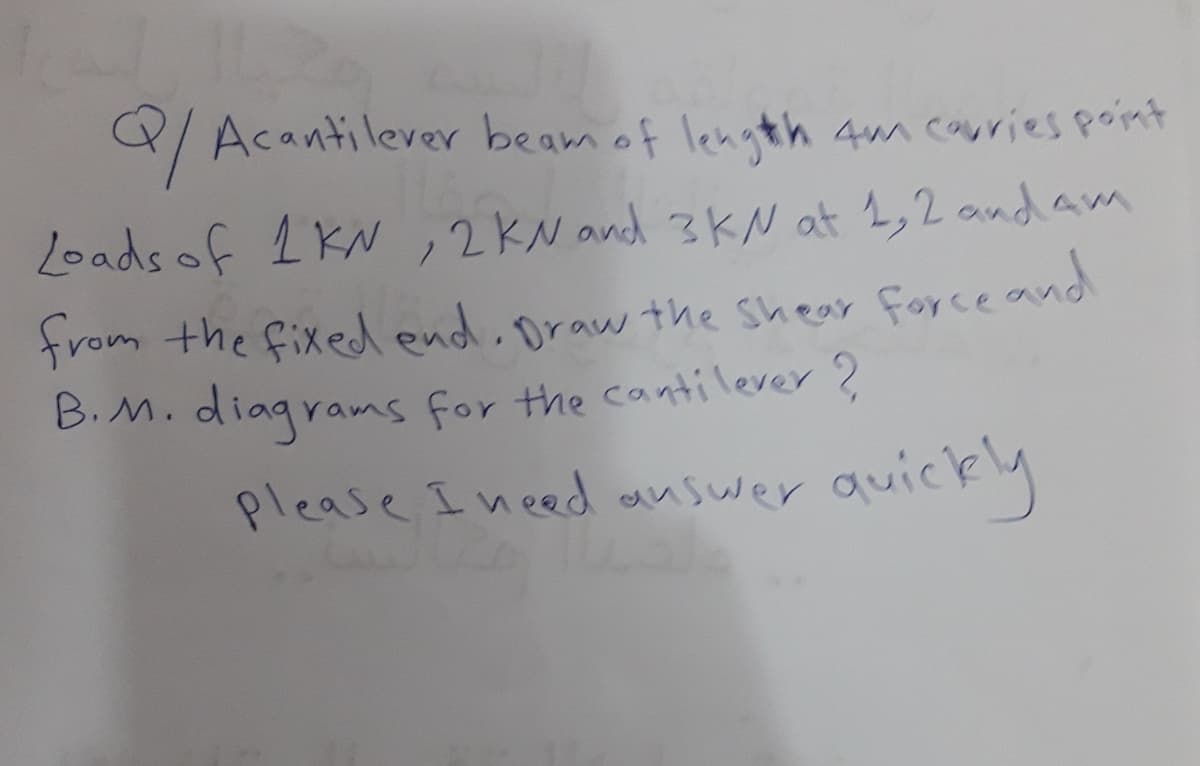 Q/ A cantilever beam of length 4m carries point
Loads of 1 KN , 2 KN and 3 KN at 1, 2 and 4m
from the fixed end. Draw the shear force and
B.M. diagrams for the cantilever ?
please I need answer quickly